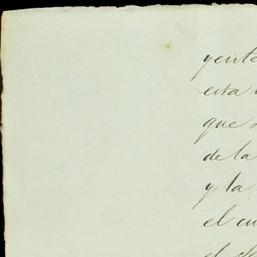 yente
esta
que
de la
y la
el cu
el